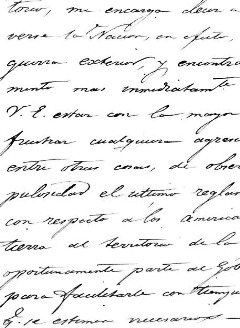 torio, me encarga decir a
verse la Nacion, en efecto,
guerra exterior, y encontra
mento mas inmediatamte
V. E. estar con la mayor
frustrar cualquiera agres
entre otras cosas, de obser
pulosidad el último reglam
con respecto á los America
tierra al territorio de la
oportunamente parte al Gob
para facilitarle con tiempo
q. se estimen necesarios